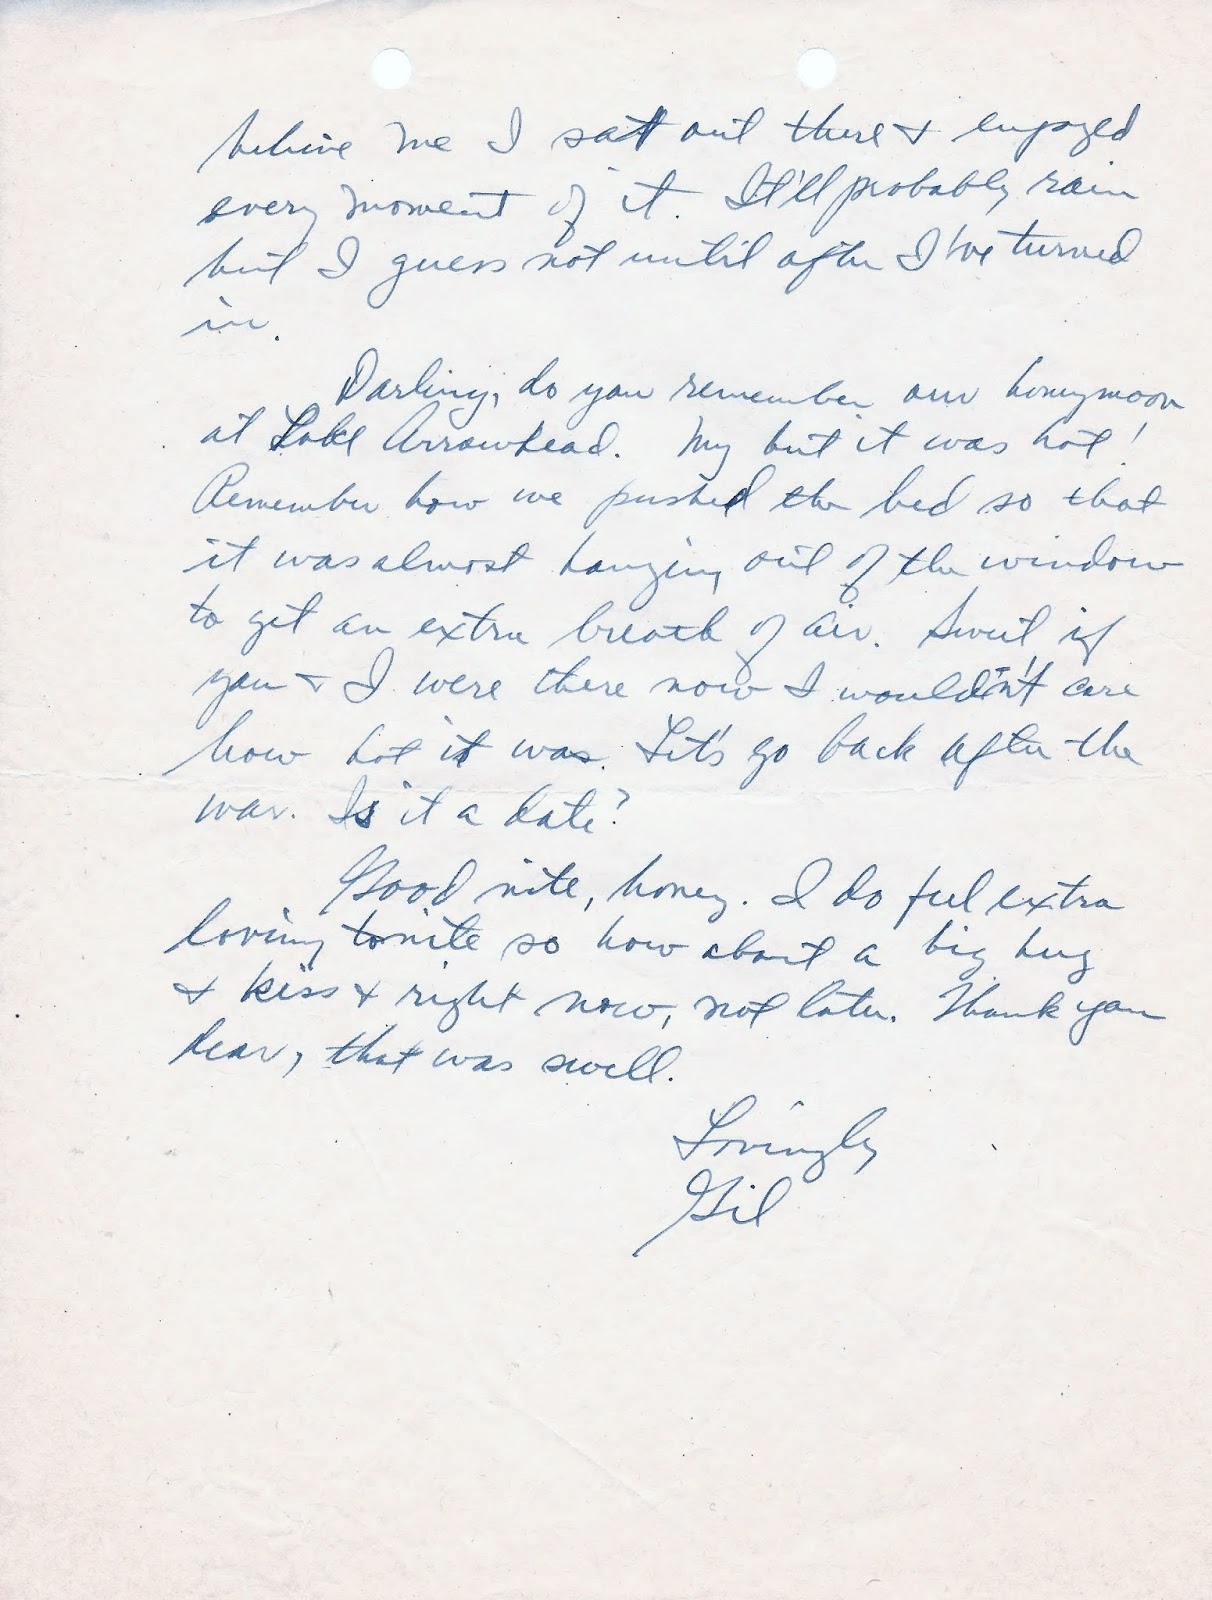 believe me I sat out there & enjoyed
every moment of it. It'll probably rain
but I guess not until after I've turned
in.
Darling, do you remember our honeymoon
at Lake Arrowhead. My but it was hot!
Remember how we pushed the bed so that
it was almost hanging out of the window
to get an extra breath of air. Sweet if
you & I were there now I wouldn't care
how hot it was. Let's go back after the
war. Is it a date?
Good nite, honey. I do feel extra
loving tonite so how about a big hug
& kiss & right now, not later. Thank you
dear, that was swell.
Lovingly
Gil